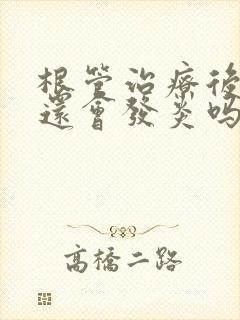 根管治療後
還會發炎嗎
高橋二路